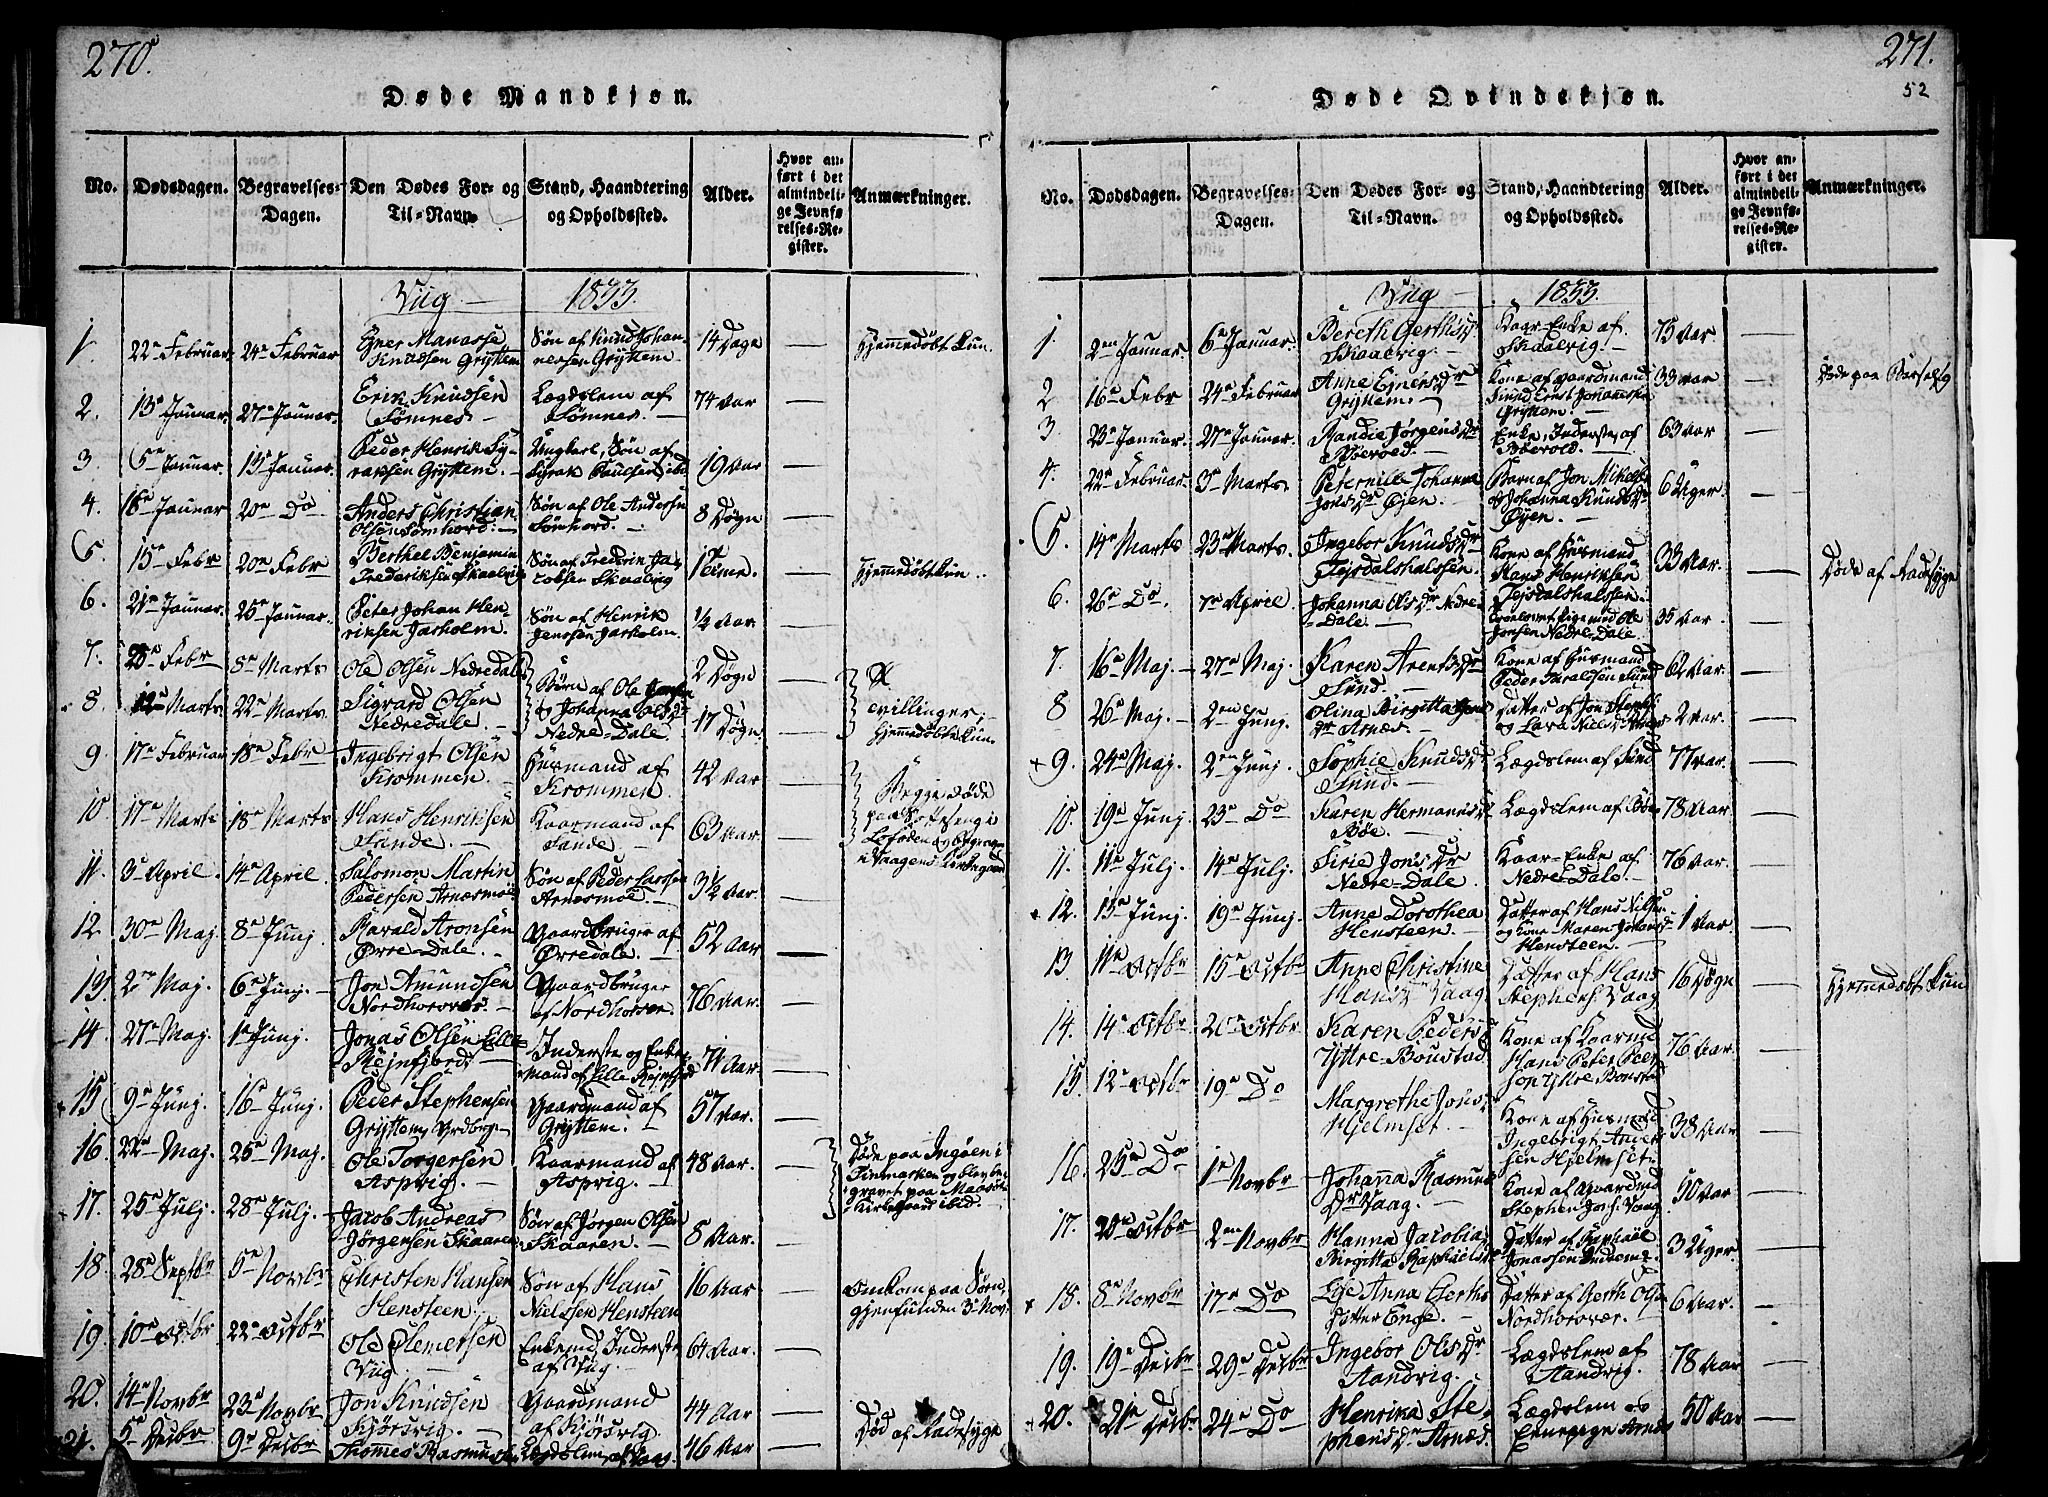 270.
Døde Mandkjøn.
No. Dødsdagen. Begravelses-Dagen. Den Dødes For- og Til-Navn. Stand, Haandtering og Opholdssted. Alder. Hvor anført i det almindelige Jevnførelses-Register. Anmærkninger.
Viig 1833.
1. 22 Februar 24 Februar Knudsen Gryttem Søn af Knud Johannessen Gryttem 14 Dage Hjemmedøbt
2. 13 Januar 27 Januar Erik Knudsen Sømnes Lægdslem af Sømnes 74 Aar
3. 5 Januar 13 Januar Peder Henrik Gryttem Ungkarl, Søn af Paulsen ibd 19 Aar
4. 16 Januar 20 Do Anders Christian Olsen Sømhord Søn af Ole Andersen Sømhord 8 Døgn
5. 15 Febr 20 Febr Berthel Benjamin Frederiksen Skaalvig Søn af Frederik Jacobsen Skaalvig 1 Time Hjemmedøbt
6. 21 Januar 25 Januar Peter Johan Henriksen Jarholm Søn af Henrik Jenssen Jarholm 1/2 Aar
7. 28 Febr 8 Marts Ole Olsen Nedredale Børn af Ole Jonsen og Johanna Olsdr Nedre-Dale 2 Døgn Tvillinger, Hjemmedøbte
8. 12 Marts 22 Marts Sigvard Olsen Nedredale 17 Døgn
9. 17 Februar 18 Febr Ingebrigt Olsen Krommen Huusmand af Krommen 42 Aar Begge døde i Lofoden og begraven i Vaagens Kirkegaard
10. 17 Marts 18 Marts Hans Henriksen Sande Kaarmand af Sande 63 Aar
11. 3 April 14 April Salomon Martin Pedersen Arnesmoe Søn af Peder Larssen Arnesmoe 3 1/2 Aar
12. 30 Maj 8 Junj Harald Aronsen Øvre-Dale Gaardbruger af Øvredale 52 Aar
13. 2 Maj 6 Junj Jon Amundsen Nordhorsvær Gaardbruger af Nordhorsvær 76 Aar
14. 27 Maj 1 Junj Jonas Olsen Lille-Rejnfjord Inderste og Enkemand af Lille Rejnfjord 71 Aar
15. 9 Junj 16 Junj Peder Stephensen Gryttem Gaardmand af Gryttem 57 Aar
16. 22 Maj 25 Maj Ole Torgersen Aspvig Kaarmand af Aspvig 48 Aar Døde paa Ingøen i Finmarken og blev begravet paa Maasøe Kirkegaard ibid.
17. 25 Julj 28 Julj Jacob Andreas Jørgensen Skaaren Søn af Jørgen Olsen Skaaren 8 Aar
18. 28 Septbr 5 Novbr Christen Hansen Hensteen Søn af Hans Nielssen Hensteen 16 Aar Omkom paa Søen, gjenfunden 3 Nov.
19. 10 Octbr 22 Octbr Ole Clemetsen Viig Enkemd, Inderste af Viig 64 Aar
20. 14 Novbr 23 Novbr Jon Knudsen Kjørsvig Gaardmand af Kjørsvig 44 Aar Død af Radesyge
21. 5 Decbr 9 Decbr Thomes Rasmussen Lægdslem af Vaag 46 Aar
271.
52
Døde Qvindekjøn.
No. Dødsdagen. Begravelses-Dagen. Den Dødes For- og Til-Navn. Stand, Haandtering og Opholdssted. Alder. Hvor anført i det almindelige Jevnførelses-Register. Anmærkninger.
Viig 1833.
1. 2 Januar 6 Januar Bereth Gerthsdr Skaalvig Kaar-Enke af Skaalvig 75 Aar
2 16 Febr 24 Februar Anne Ejnersdr Gryttem Kone af Gaardmand Knud Ernst Johannessen Gryttem 33 Aar Døde paa Barselsg
3. 23 Januar 27 Januar Randie Jørgensdr Bøevold Enke, Inderste, af Bøevold 63 Aar
4. 22 Februar 3 Marts Peternille Johanna Jonsdr Øjen Barn af Jon Mikels og Johanna Knudsdr Øyen 6 Uger
5. 14 Marts 23 Marts Ingebor Knudsdr Tejsdalshalssen Kone af Huusmand Hans Henriksen Tejsdalshalssen 33 Aar Døde af Radesyge
6. 26 Do 7 April Johanna Olsdr Nedre-Dale Trolovet Pige med Ole Jonsen Nedre-Dale 35 Aar
7. 16 Maj 27 Maj Karen Arentsdr Sund Kone af Huusmand Peder Haralssen Sund 62 Aar
8 26 Maj 2 Junj Olina Birgitta Jonsdr Arnæs Datter af Jon Stephs og Lava Nielsdr Arnæs 2 Aar
9. 24 Maj 2 Junj Sophie Knudsdr Sund Lægdslem af Sund 77 Aar
10. 19 Junj 23 Do Karen Hermansdr Bøe Lægdslem af Bøe 78 Aar
11. 11 Julj 14 Julj Sirie Jonsdr Nedre-Dale Kaar-Enke af Nedre-Dale 76 Aar
12. 13 Junj 19 Junj Anne Dorothea Hensteen Datter af Hans Nilsen og Kone Maren Hensteen 1 Aar
13. 11 Octbr 15 Octbr Anne Christine Hansdr Vaag Datter af Hans Stephens. Vaag 16 Døgn Hjemmedøbt
14. 14 Octbr 20 Octbr Karen Pedersdr Yttre-Boustad Kone af Kaarmd Hans Peter Yttre Boustad 76 Aar
15. 12 Octbr 19 Do Margrethe Jonsdr Hjelmset Kone af Huusmand Ingebrigt Andersen Hjelmset 38 Aar
16. 25 Do 1 Novbr Johanna Rasmusdr Vaag Kone af Gaardmd Stephen Joh. Vaag 50 Aar
17. 20 Octbr 2 Novbr Hanna Jacobia Birgitta Raphaelsdr Datter af Raphael Jonassen 3 Uger
18. 8 Novbr 17 Do Else Anna Gerthsdatter Enge Datter af Gerth Olsen Nordhorsvær 6 Aar
19. 19 Decbr 29 Decbr Ingebor Olsdr Aandvig Lægdslem af Aandvig 78 Aar
20. 21 Decbr 24 Do Henrika Stephensdr Arnæs Lægdslem og Arnæs 50 Aar